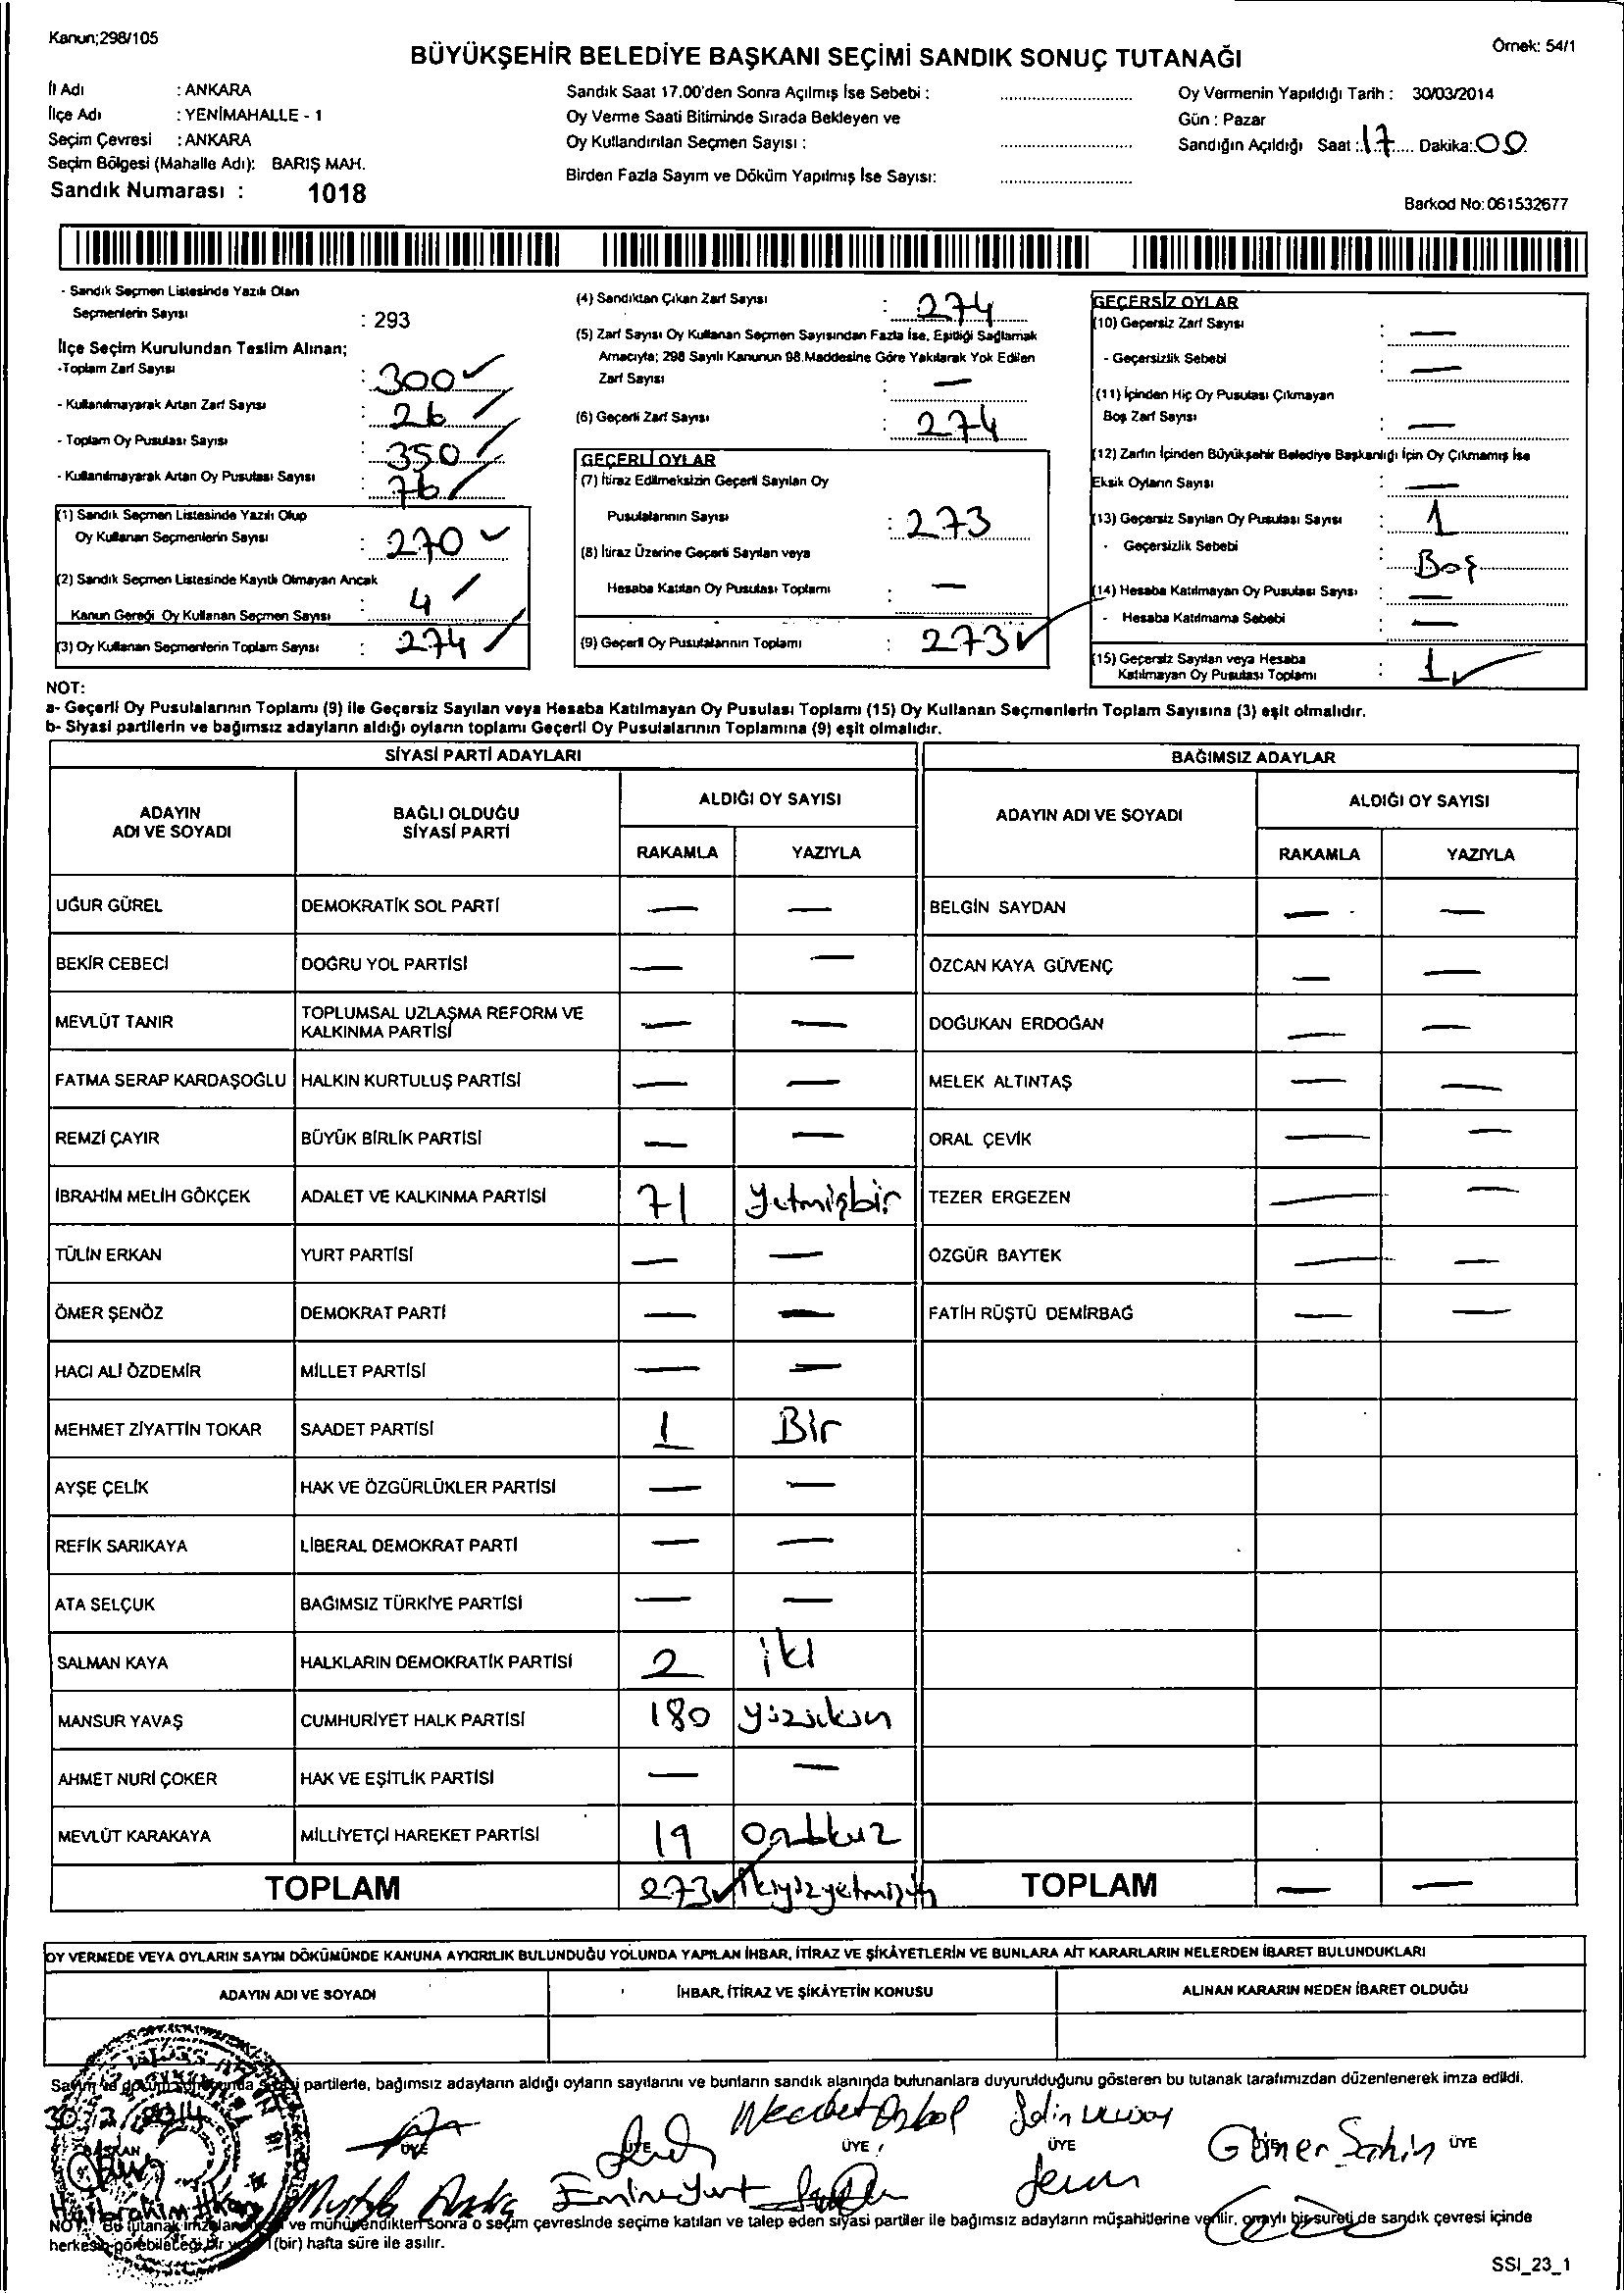 Kanun;298/105
BÜYÜKŞEHİR BELEDİYE BAŞKANI SEÇİMİ SANDIK SONUÇ TUTANAĞI
Örnek: 54/1
İl Adı : ANKARA
İlçe Adı : YENİMAHALLE - 1
Seçim Çevresi : ANKARA
Seçim Bölgesi (Mahalle Adı): BARIŞ MAH.
Sandık Numarası : 1018
Sandık Saat 17.00'den Sonra Açılmış İse Sebebi :
Oy Verme Saati Bitiminde Sırada Bekleyen ve
Oy Kullandırılan Seçmen Sayısı :
Birden Fazla Sayım ve Döküm Yapılmış İse Sayısı:
Oy Vermenin Yapıldığı Tarih : 30/03/2014
Gün : Pazar
Sandığın Açıldığı Saat : 17 Dakika: 00
Barkod No: 061532677
- Sandık Seçmen Listesinde Yazılı Olan
Seçmenlerin Sayısı : 293
İlçe Seçim Kurulundan Teslim Alınan;
-Toplam Zarf Sayısı : 300
- Kullanılmayarak Artan Zarf Sayısı : 26
- Toplam Oy Pusulası Sayısı : 350
- Kullanılmayarak Artan Oy Pusulası Sayısı : 76
(1) Sandık Seçmen Listesinde Yazılı Olup
Oy Kullanan Seçmenlerin Sayısı : 270
(2) Sandık Seçmen Listesinde Kayıtlı Olmayan Ancak
Kanun Gereği Oy Kullanan Seçmen Sayısı : 4
(3) Oy Kullanan Seçmenlerin Toplam Sayısı : 274
(4) Sandıktan Çıkan Zarf Sayısı : 274
(5) Zarf Sayısı Oy Kullanan Seçmen Sayısından Fazla İse, Eşitliği Sağlamak
Amacıyla; 298 Sayılı Kanunun 98.Maddesine Göre Yakılarak Yok Edilen
Zarf Sayısı : —
(6) Geçerli Zarf Sayısı : 274
GEÇERLİ OYLAR
(7) İtiraz Edilmeksizin Geçerli Sayılan Oy
Pusulalarının Sayısı : 273
(8) İtiraz Üzerine Geçerli Sayılan veya
Hesaba Katılan Oy Pusulası Toplamı : —
(9) Geçerli Oy Pusulalarının Toplamı : 273
GEÇERSİZ OYLAR
(10) Geçersiz Zarf Sayısı : —
- Geçersizlik Sebebi : —
(11) İçinden Hiç Oy Pusulası Çıkmayan
Boş Zarf Sayısı : —
(12) Zarfın İçinden Büyükşehir Belediye Başkanlığı İçin Oy Çıkmamış İse
Eksik Oyların Sayısı : —
(13) Geçersiz Sayılan Oy Pusulası Sayısı : 1
- Geçersizlik Sebebi : Boş
(14) Hesaba Katılmayan Oy Pusulası Sayısı : —
- Hesaba Katılmama Sebebi : —
(15) Geçersiz Sayılan veya Hesaba
Katılmayan Oy Pusulası Toplamı : 1
NOT:
a- Geçerli Oy Pusulalarının Toplamı (9) ile Geçersiz Sayılan veya Hesaba Katılmayan Oy Pusulası Toplamı (15) Oy Kullanan Seçmenlerin Toplam Sayısına (3) eşit olmalıdır.
b- Siyasi partilerin ve bağımsız adayların aldığı oyların toplamı Geçerli Oy Pusulalarının Toplamına (9) eşit olmalıdır.
SİYASİ PARTİ ADAYLARI BAĞIMSIZ ADAYLAR
ADAYIN ADI VE SOYADI BAĞLI OLDUĞU SİYASİ PARTİ ALDIĞI OY SAYISI ADAYIN ADI VE SOYADI ALDIĞI OY SAYISI
RAKAMLA YAZIYLA RAKAMLA YAZIYLA
UĞUR GÜREL DEMOKRATİK SOL PARTİ — — BELGİN SAYDAN — —
BEKİR CEBECİ DOĞRU YOL PARTİSİ — — ÖZCAN KAYA GÜVENÇ — —
MEVLÜT TANIR TOPLUMSAL UZLAŞMA REFORM VE KALKINMA PARTİSİ — — DOĞUKAN ERDOĞAN — —
FATMA SERAP KARDAŞOĞLU HALKIN KURTULUŞ PARTİSİ — — MELEK ALTINTAŞ — —
REMZİ ÇAYIR BÜYÜK BİRLİK PARTİSİ — — ORAL ÇEVİK — —
İBRAHİM MELİH GÖKÇEK ADALET VE KALKINMA PARTİSİ 71 yetmişbir TEZER ERGEZEN — —
TÜLİN ERKAN YURT PARTİSİ — — ÖZGÜR BAYTEK — —
ÖMER ŞENÖZ DEMOKRAT PARTİ — — FATİH RÜŞTÜ DEMİRBAĞ — —
HACI ALİ ÖZDEMİR MİLLET PARTİSİ — —
MEHMET ZİYATTİN TOKAR SAADET PARTİSİ 1 Bir
AYŞE ÇELİK HAK VE ÖZGÜRLÜKLER PARTİSİ — —
REFİK SARIKAYA LİBERAL DEMOKRAT PARTİ — —
ATA SELÇUK BAĞIMSIZ TÜRKİYE PARTİSİ — —
SALMAN KAYA HALKLARIN DEMOKRATİK PARTİSİ 2 iki
MANSUR YAVAŞ CUMHURİYET HALK PARTİSİ 180 yüzseksen
AHMET NURİ ÇOKER HAK VE EŞİTLİK PARTİSİ — —
MEVLÜT KARAKAYA MİLLİYETÇİ HAREKET PARTİSİ 19 ondokuz
TOPLAM 273 ikiyüzyetmişüç TOPLAM — —
OY VERMEDE VEYA OYLARIN SAYIM DÖKÜMÜNDE KANUNA AYKIRILIK BULUNDUĞU YOLUNDA YAPILAN İHBAR, İTİRAZ VE ŞİKÂYETLERİN VE BUNLARA AİT KARARLARIN NELERDEN İBARET BULUNDUKLARI
ADAYIN ADI VE SOYADI İHBAR, İTİRAZ VE ŞİKÂYETİN KONUSU ALINAN KARARIN NEDEN İBARET OLDUĞU
partilerle, bağımsız adayların aldığı oyların sayılarını ve bunların sandık alanında bulunanlara duyurulduğunu gösteren bu tutanak tarafımızdan düzenlenerek imza edildi.
BAŞKAN ÜYE ÜYE ÜYE ÜYE ÜYE
Güner Şahin
Emine Yurt
NOT: Bu tutanak ve mühürlendikten sonra o seçim çevresinde seçime katılan ve talep eden siyasi partiler ile bağımsız adayların müşahitlerine verilir, onaylı bir sureti de sandık çevresi içinde
herkesin görebileceği bir (bir) hafta süre ile asılır.
SSI_23_1